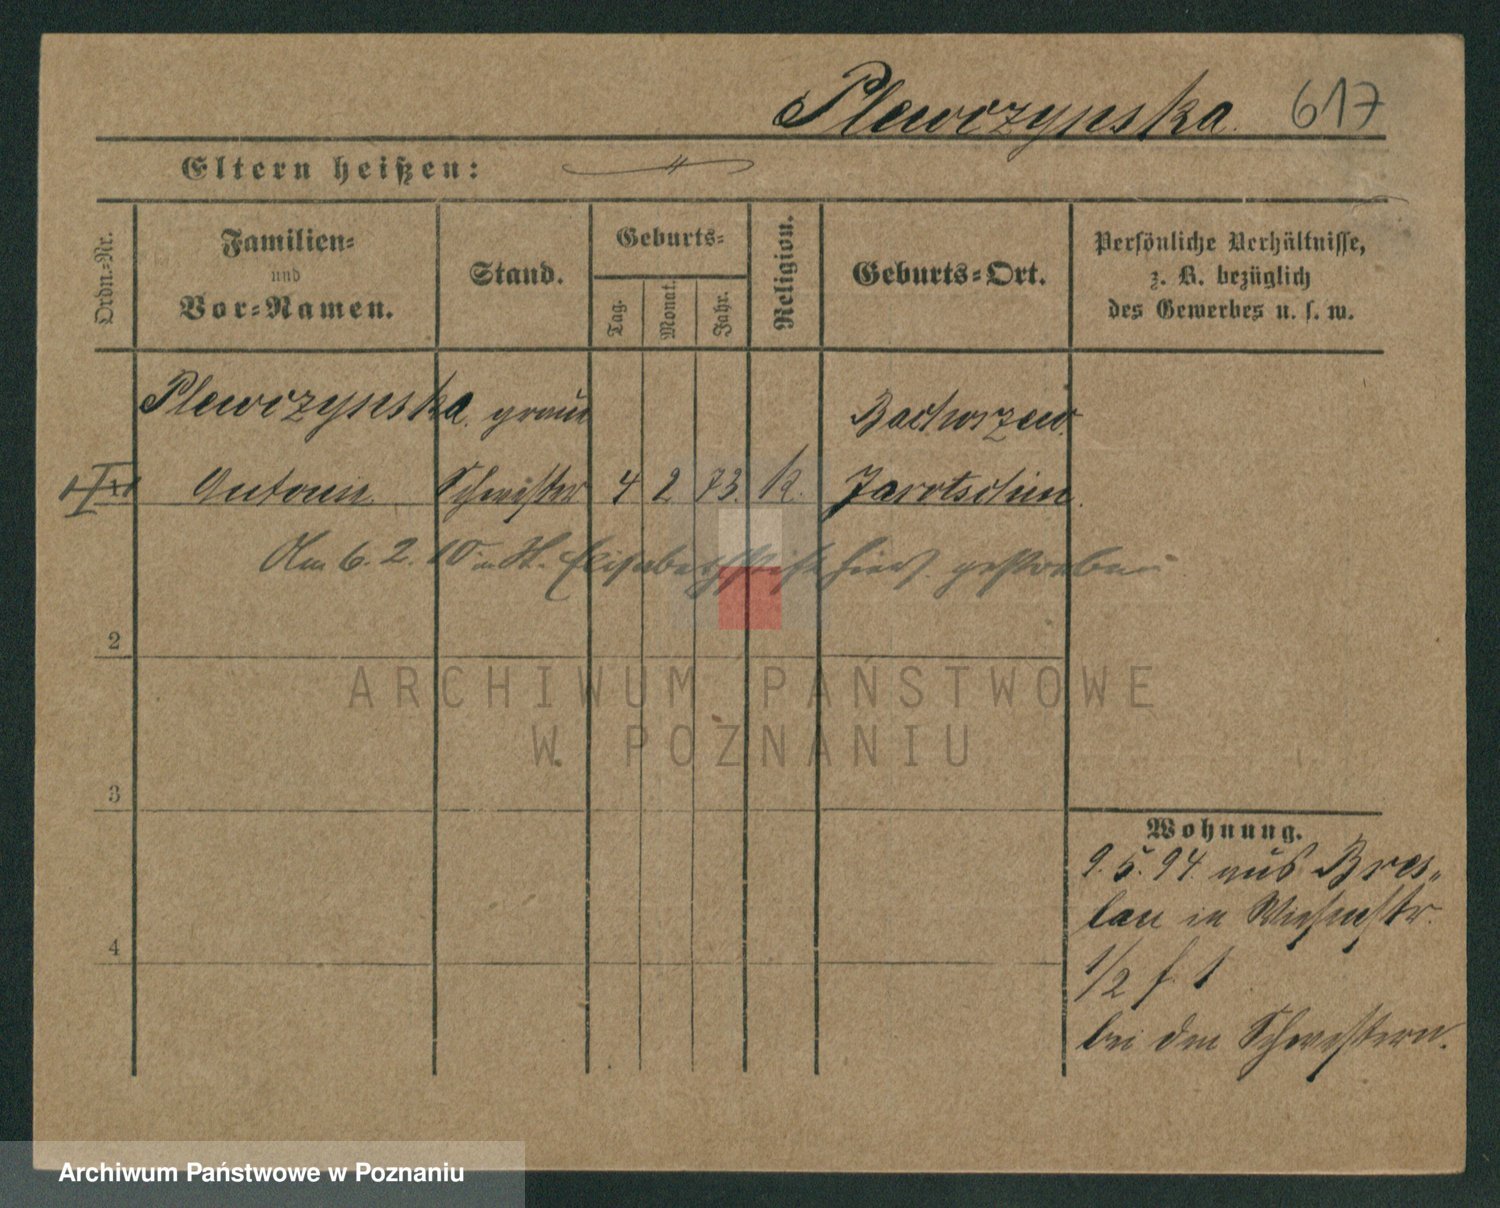 Plewczynska. 617
Eltern heißen:
Ordn.-Nr.
Familien-
und
Vor-Namen.
Stand.
Geburts-
Tag.
Monat.
Jahr.
Religion.
Geburts-Ort.
Persönliche Verhältnisse,
z. B. bezüglich
des Gewerbes u. s. w.
Plewczynska. graue Bachorzew.
Antonie Schwester 4 2 73. k. Jarotschin.
Am 6. 2. 10 in St. Elisabethstift hier gestorben
2
3
4
Wohnung.
9. 5. 94. aus Bres-
lau in Wiesenstr.
1/2 f 1
bei den Schwestern.
ARCHIWUM PAŃSTWOWE
W POZNANIU
Archiwum Państwowe w Poznaniu